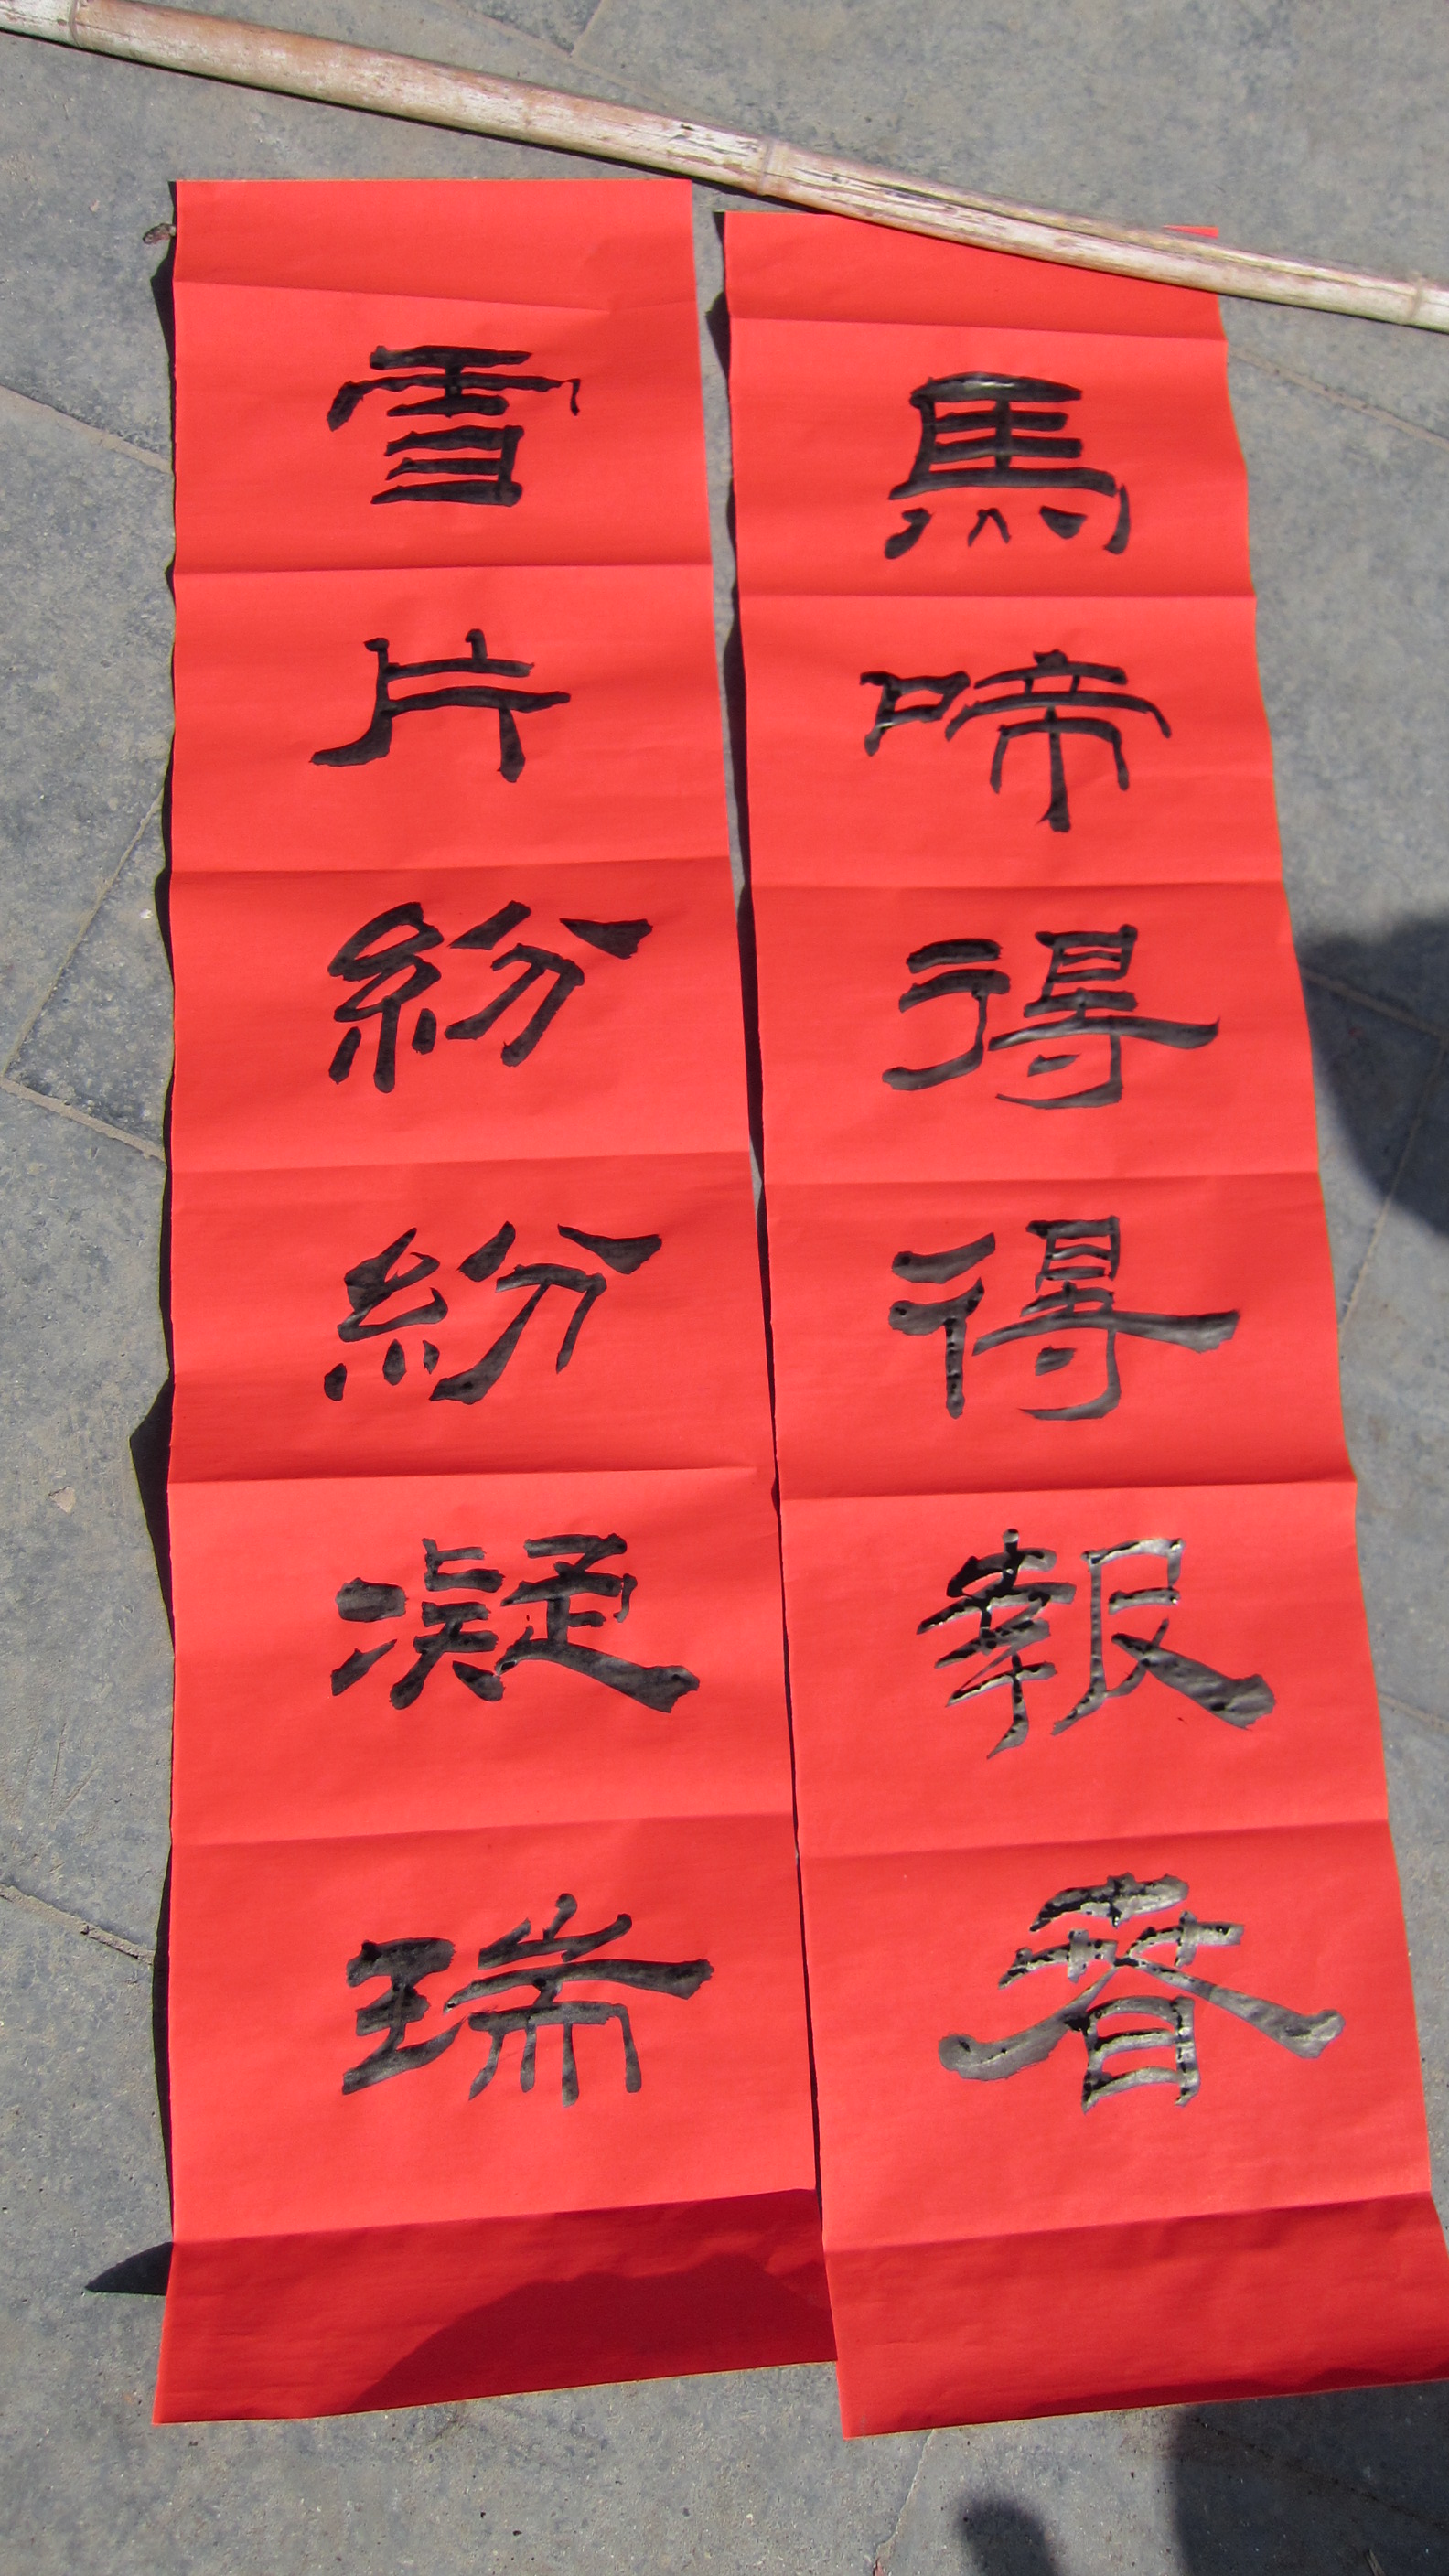 馬啼得得報春
雪片紛紛凝瑞